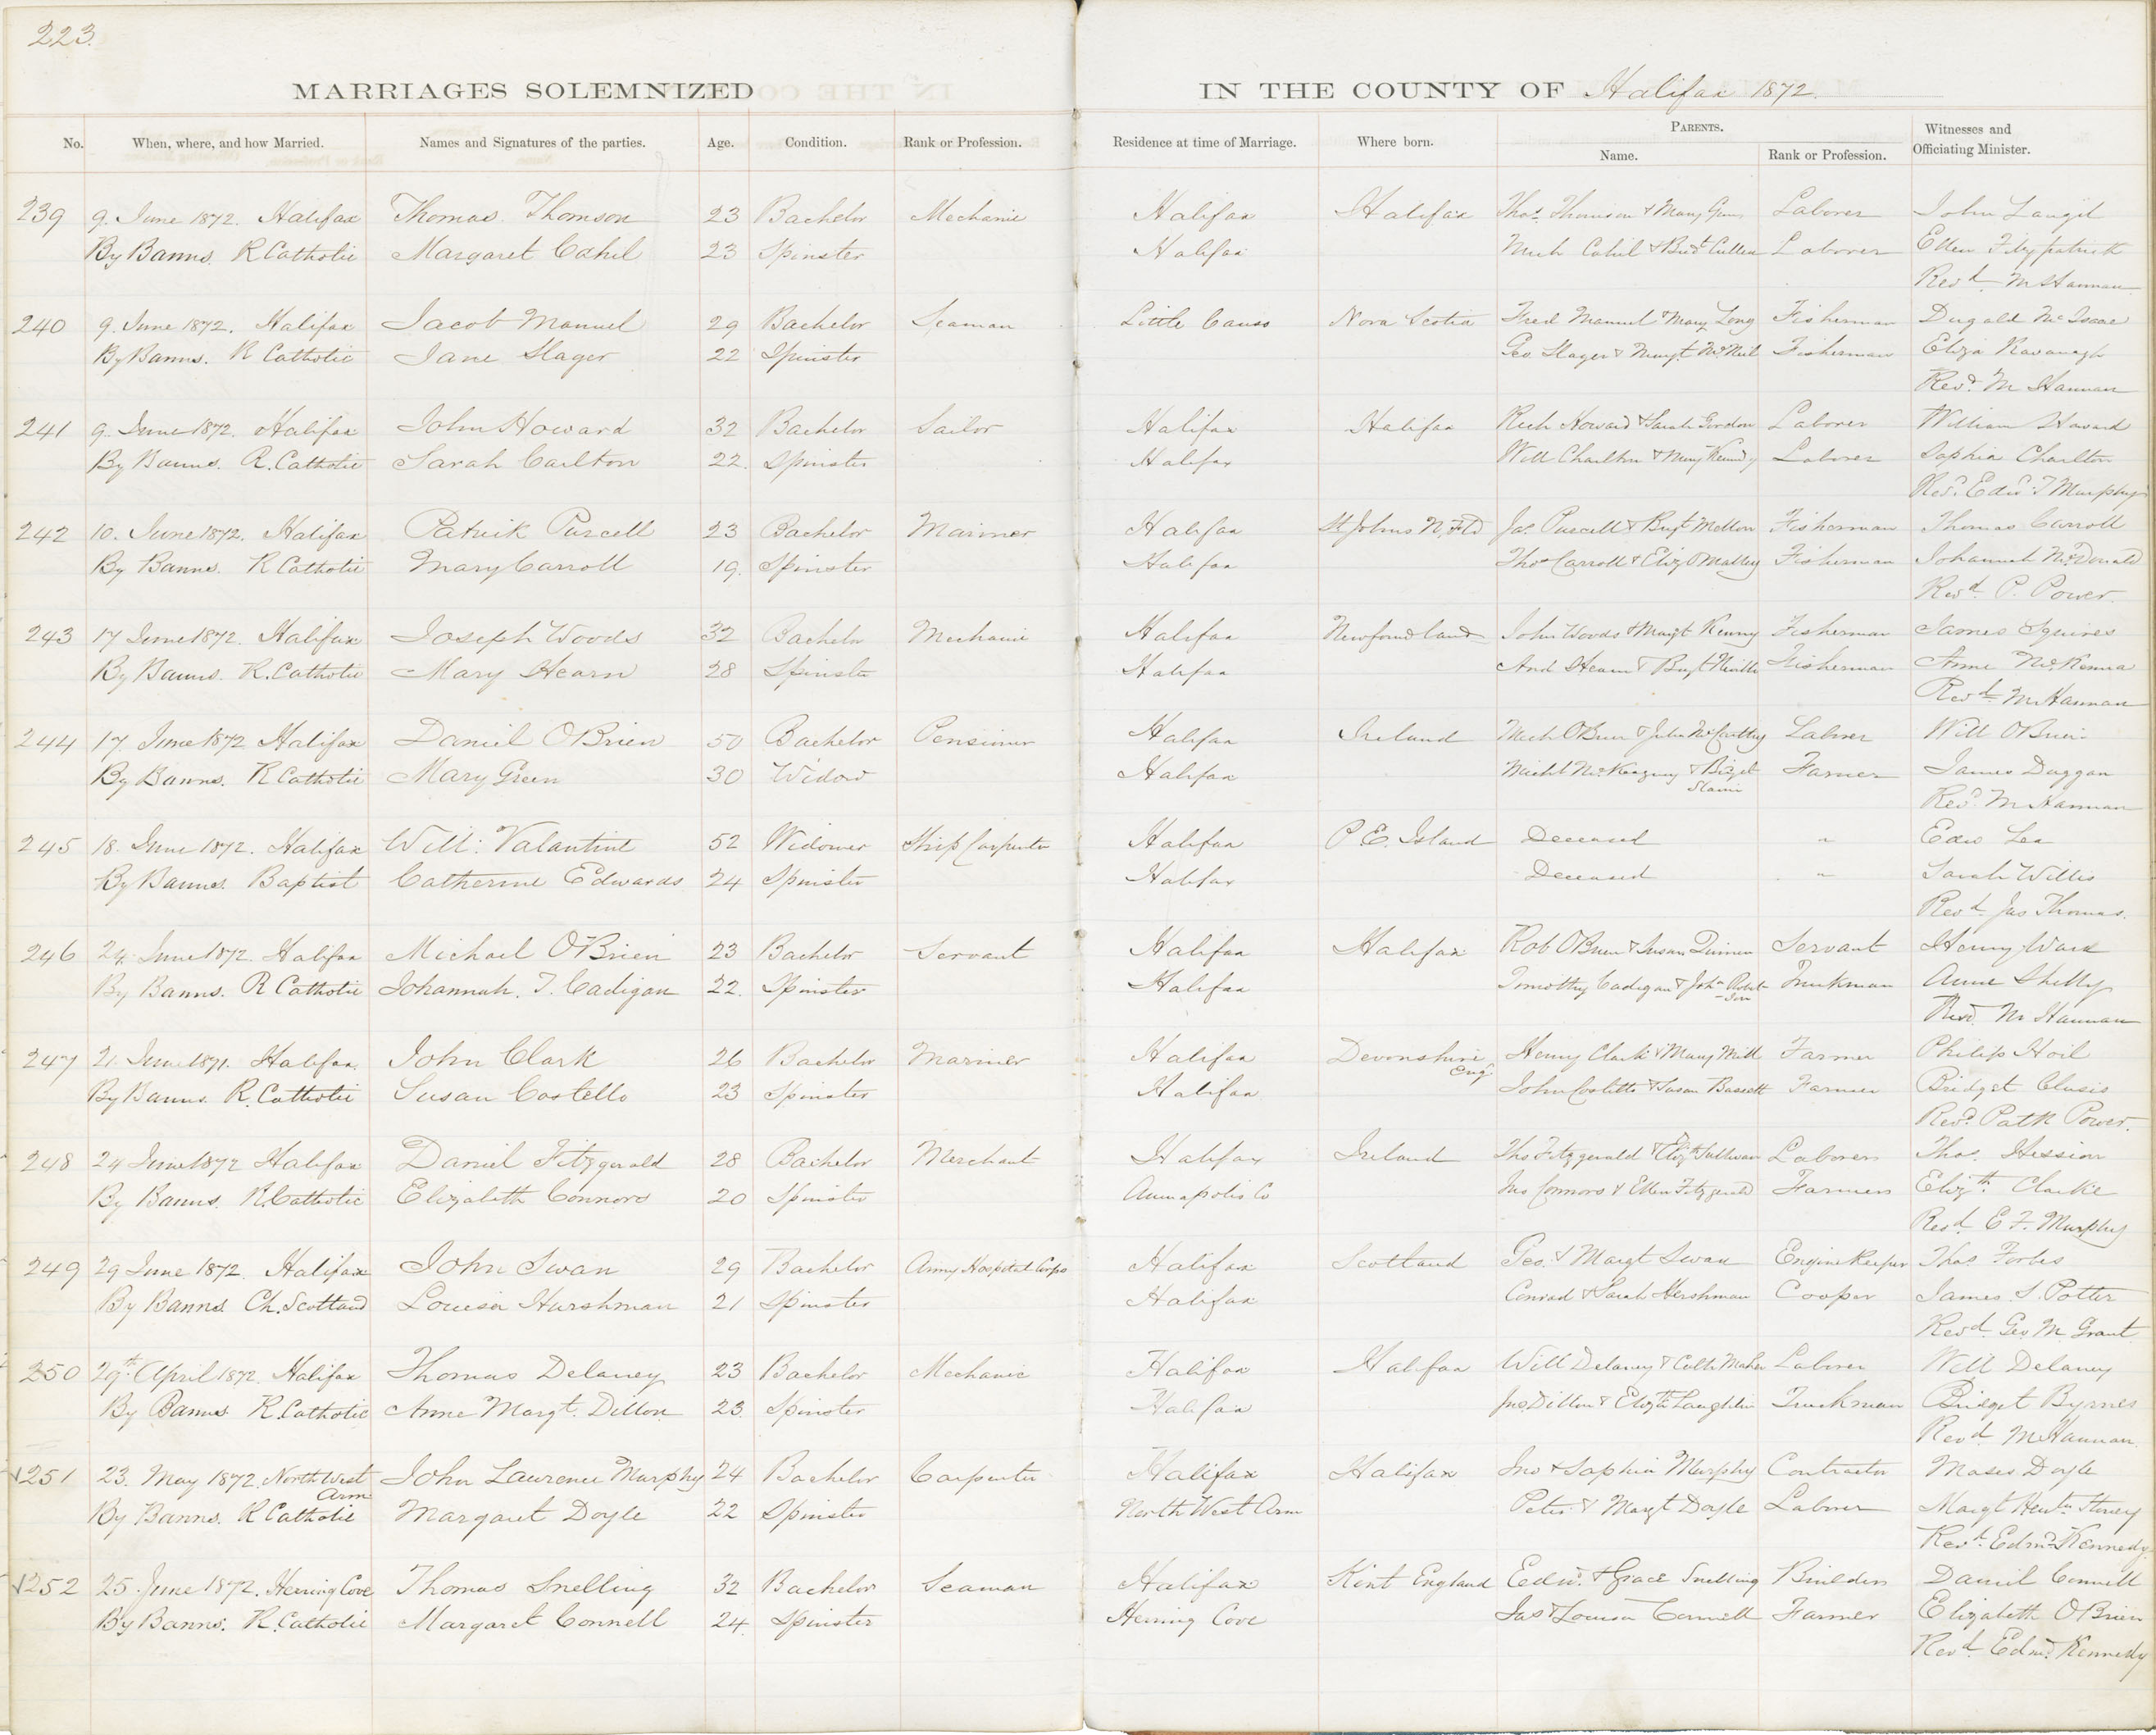 223.
MARRIAGES SOLEMNIZED IN THE COUNTY OF Halifax 1872.
No. When, where, and how Married. Names and Signatures of the parties. Age. Condition. Rank or Profession. Residence at time of Marriage. Where born. PARENTS. Witnesses and
Name. Rank or Profession. Officiating Minister.
239 9. June 1872. Halifax Thomas Thomson 23 Bachelor Mechanic Halifax Halifax Thos. Thomson & Mary Laborer John
By Banns. R Catholic Margaret Cahil 23 Spinster Halifax Mich Cahil & Bridt Cullen Laborer Ellen Fitzpatrick
Revd. M Hannan
240 9. June 1872. Halifax Jacob Manuel 29 Bachelor Seaman Little Canso Nova Scotia Fred Manuel & Mary Long Fisherman Dugald McIsaac
By Banns. R Catholic Jane Slager 22 Spinster Geo Slager & Margt. McNeil Fisherman Eliza Kavanagh
Revd. M Hannan
241 9. June 1872. Halifax John Howard 32 Bachelor Sailor Halifax Halifax Rich Howard & Sarah Gordon Laborer William Howard
By Banns. R. Catholic Sarah Carlton 22. Spinster Halifax Will Charlton & Mary Laborer Sophia Charlton
Revd. Edwd. T Murphy
242 10. June 1872. Halifax Patrick Purcell 23 Bachelor Mariner Halifax St Johns N. Fld Jas. Purcell & Brigt Fisherman Thomas Carroll
By Banns. R Catholic Mary Carroll 19. Spinster Halifax Thos Carroll & Eliz OMalley Fisherman Johannah McDonald
Revd. P. Power.
243 17 June 1872. Halifax Joseph Woods 32 Bachelor Mechanic Halifax Newfoundland John Woods & Margt Kenny Fisherman James Squires
By Banns. R. Catholic Mary Hearn 28 Spinster Halifax And Hearn & Brigt Fisherman Anne McKenna
Revd. M Hannan
244 17. June 1872 Halifax Daniel OBrien 50 Bachelor Pensioner Halifax Ireland Mich OBrien & McCarthy Laborer Will OBrien
By Banns. R Catholic Mary Green 30 Widow Halifax Michl & Bigt Farmer James Duggan
Revd. M Hannan
245 18. June 1872. Halifax Will: Valantine 52 Widower Ship Carpenter Halifax P. E. Island Deceased " Edw Lea
By Banns. Baptist Catherine Edwards 24 Spinster Halifax Deceased " Sarah Willis
Revd. Jas Thomas.
246 24. June 1872. Halifax Michael O'Brien 23 Bachelor Servant Halifax Halifax Rob OBrien & Susan Servant Henry Ward
By Banns. R Catholic Johannah. T. Cadigan 22. Spinster Halifax Timothy Cadigan & Joha Robert- Truckman Anne Shelly
-son
Revd. M Hannan
247 21. June 1871. Halifax. John Clark 26 Bachelor Mariner Halifax Devonshire Henry Clark & Mary Mill Farmer Philip Hoil
Eng.
By Banns. R. Catholic Susan Costello 23 Spinster Halifax John Costello & Susan Bassett Farmer Bridget
Revd. Patk Power.
248 24 June 1872 Halifax Daniel Fitzgerald 28 Bachelor Merchant Halifax Ireland Thos Fitzgerald & Elizth Sullivan Laborer Thos. Hession
By Banns. R. Catholic Elizabeth Connors 20 Spinster Annapolis Co Jas Connors & Ellen Fitzgerald Farmers Elizth. Clarke
Revd. E F. Murphy
249 29 June 1872. Halifax John Swan 29 Bachelor Army Hospital Corps Halifax Scotland Geo. & Margt Swan Engine Keeper Thos. Forbes
By Banns. Ch. Scotland Louisa Hurshman 21 Spinster Halifax Conrad & Sarah Hershman Cooper James. S. Potter
Revd. Geo M. Grant
250 29th. April 1872. Halifax Thomas Delaney 23 Bachelor Mechanic Halifax Halifax Will Delaney & Cath Maher Laborer Will Delaney
By Banns R. Catholic Anne Margt. Dillon 23. Spinster Halifax Jno. Dillon & Elizth Laughlin Truckman Bridget Byrnes
Revd. M Hannan.
251 23. May 1872. North West John Lawrence Murphy 24 Bachelor Carpenter Halifax Halifax Jno & Sophia Murphy Contractor Moses Doyle
Arm
By Banns. R Catholic Margaret Doyle 22 Spinster North West Arm Peter & Margt Doyle Laborer Margt
Revd. Edmd. Kennedy.
252 25. June 1872. Herring Cove Thomas Snelling 32 Bachelor Seaman Halifax Kent England Edw. & Grace Snelling Builder Daniel Connell
By Banns. R. Catholic Margaret Connell 24. Spinster Herring Cove Jas & Louisa Connell Farmer Elizabeth OBrien
Revd. Edmd. Kennedy